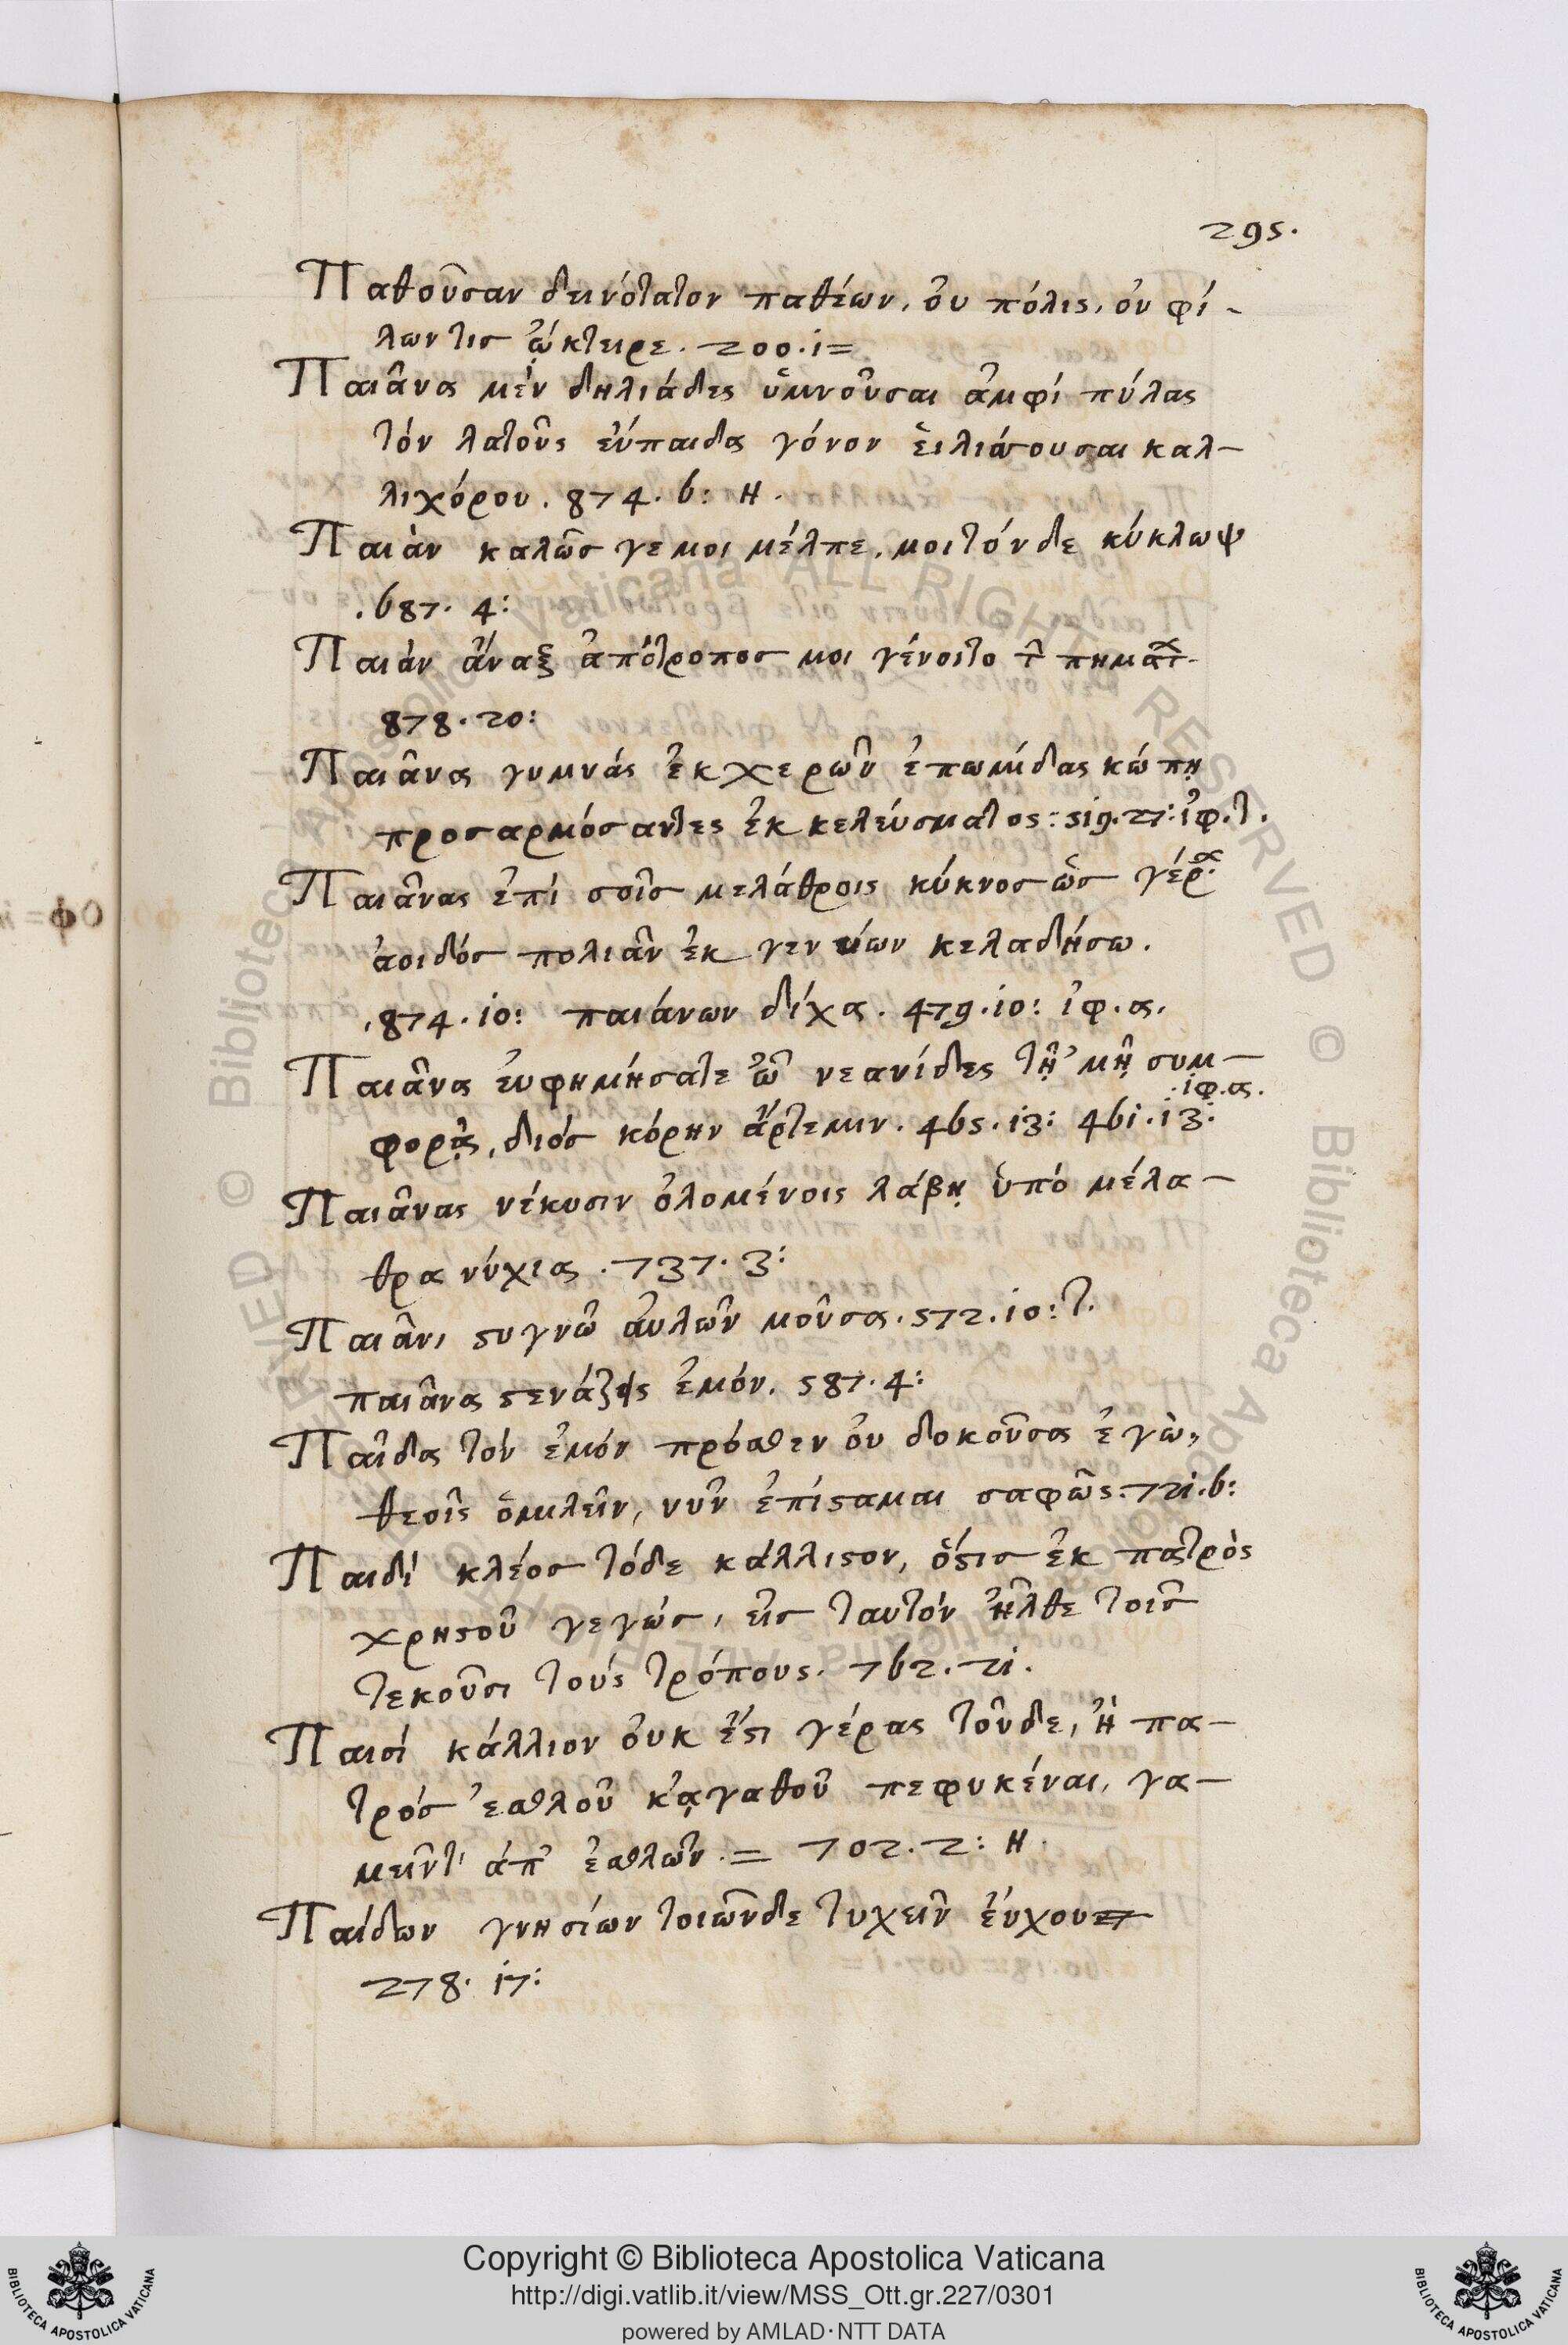 295.
Παθοῦσαν δεινότατον παθέων, ὀυ πόλις, ὀυ φί-
λων τισ ᾤκτειρε. 200.1=
Παιᾶνα μὲν δηλιάδες ὑμνοῦσαι ἀμφὶ πύλας
τὸν λατοῦς εὔπαιδα γόνον ἑιλιάσουσαι καλ-
λιχόρου. 874. 6: Η.
Παιὰν καλῶσ γε μοι μέλπε, μοι τόνδε κύκλωψ
.687. 4:
Παιὰν ἄναξ ἀπότροπος μοι γένοιτο τ̃ πημάτ
878. 20:
Παιᾶνα γυμνάς ἐκ χερῶν ἐπωμίδας κώπῃ
προσαρμόσαντες ἐκ κελεύσματος: 519. 27: ἰφ. τ.
Παιᾶνας ἐπὶ σοῖσ μελάθροις κύκνος ὣσ γέρ
ἀοιδόσ πολιᾶν ἐκ γενύων κελαδήσω.
.874. 10: παιάνων δίχα. 479. 10: ἰφ. α.
Παιᾶνα ἐυφημήσατε ὦ νεανίδες τῇ ’μῇ συμ-
ἰφ. α.
φορᾷς, διόσ κόρην ἄρτεμιν. 465. 13: 461. 13:
Παιᾶνας νέκυσιν ὀλομένοις λάβῃ ὑπὸ μέλα-
θρα νύχια. 737. 3:
Παιᾶνι στυγνῶ ἀυλῶν μοῦσα. 572. 10: τ.
παιᾶνα στενάζεις ἐμόν. 587. 4:
Παῖδα τὸν ἐμόν πρόσθεν ὀυ δοκοῦσα ἐγὼ,
θεοῖς ὁμιλεῖν, νυν ἐπίσταμαι σαφῶς. 721. 6:
Παιδὶ κλέοσ τόδε κάλλιστον, ὅστισ ἐκ πατρὸς
χρηστοῦ γεγώσ, εἰσ ταυτόν ἦλθε τοῖσ
τεκοῦσι τούς τρόπους. 762. 21.
Παισὶ κάλλιον ὀυκ ἔστι γέρας τοῦδε, ἢ πα-
τρόσ ’εσθλοῦ κᾀγαθοῦ πεφυκέναι, γα-
μεῖντ’ ἀπ’ ἐσθλῶν. = 702. 2: Η.
Παίδων γνησίων τοιῶνδε τυχεῖν ἐύχου
278. 17:
Copyright © Biblioteca Apostolica Vaticana
http://digi.vatlib.it/view/MSS_Ott.gr.227/0301
powered by AMLAD·NTT DATA